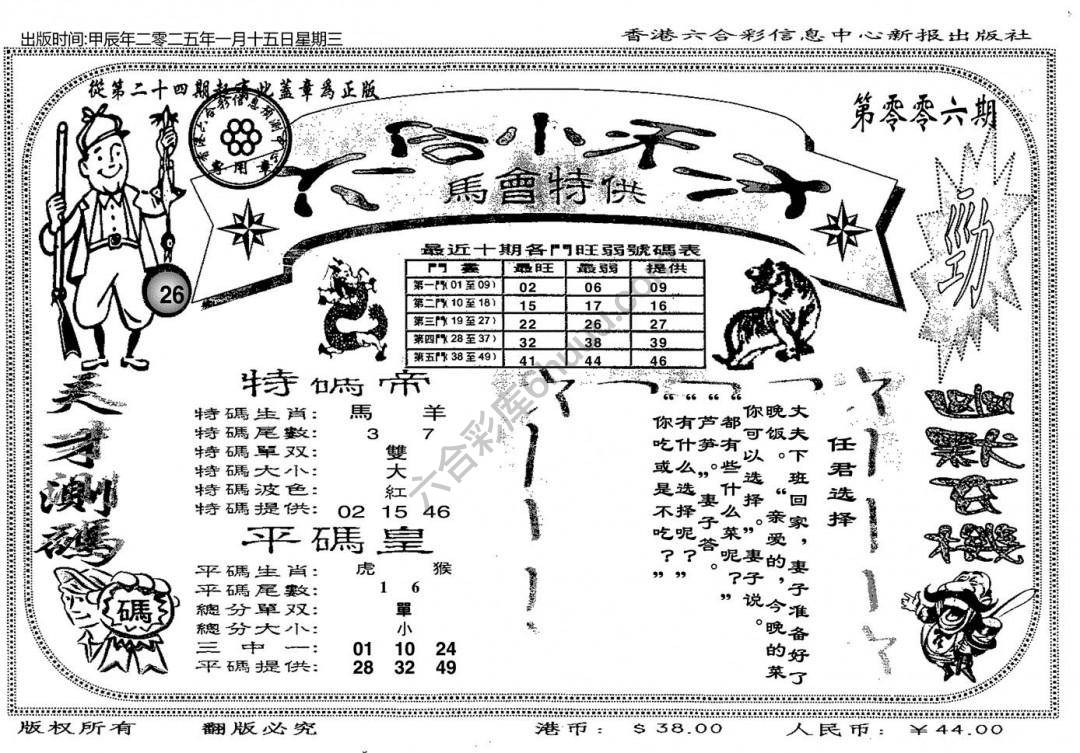 出版时间:甲辰年二零二五年一月十五日星期三
香港六合彩信息中心新报出版社
從第二十四期起有此蓋章爲正版
第零零六期
專用章
馬會特供
勁
26
最近十期各門旺弱號碼表
門 最旺 最弱 提供
第一門(01至09) 02 06 09
第二門(10至18) 15 17 16
第三門(19至27) 22 26 27
第四門(28至37) 32 38 39
第五門(38至49) 41 44 46
天才測碼
特碼帝
特碼生肖: 馬 羊
特碼尾數: 3 7
特碼單双: 雙
特碼大小: 大
特碼波色: 紅
特碼提供: 02 15 46
平碼皇
平碼生肖: 虎 猴
平碼尾數: 1 6
總分單双: 單
總分大小: 小
三中一: 01 10 24
平碼提供: 28 32 49
碼
任君选择
丈夫下班回家，妻子准备好了
晚饭。“亲爱的，今晚的菜
你可以选择。”妻子说。
“都有些什么菜呢？”
“芦笋。”妻子答。
“有什么选择呢？”
“你吃或是不吃？”
幽默玄機
六合彩库6huuu.com
版权所有 翻版必究 港币: $38.00 人民币: ¥44.00